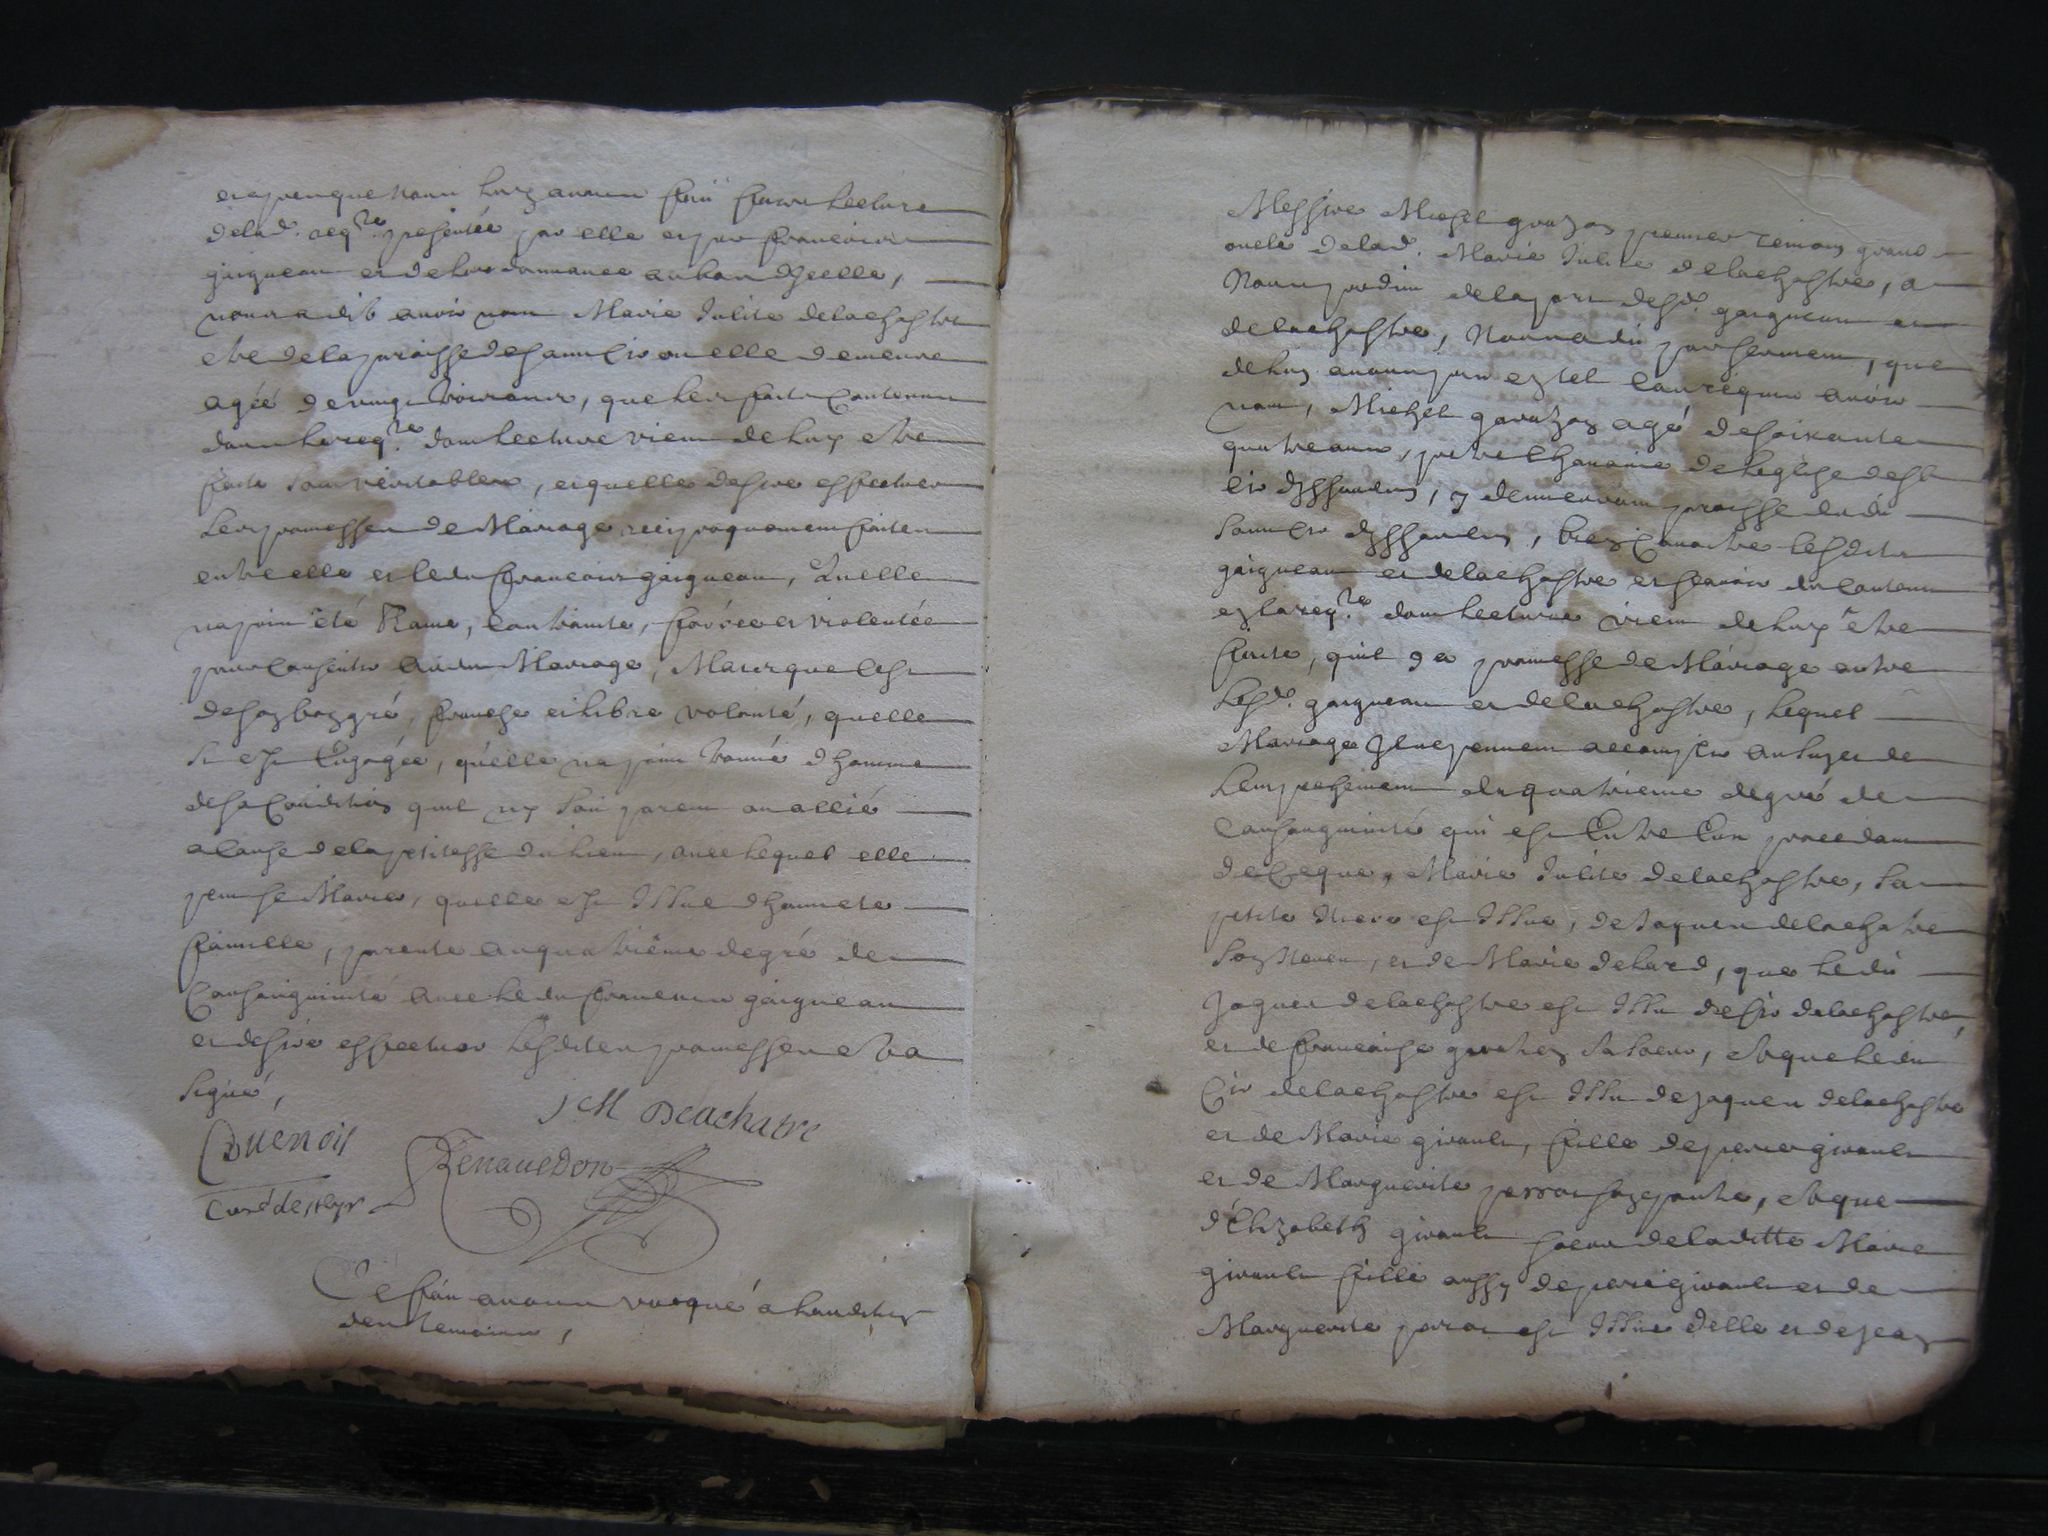 et apres que nous luy avons fait faire lecture
de lad. reqte. presentée par elle et par francois
gaigneau et de lordonnance au bas dycelle,
nous a dit avoir nom Marie Julite delachastre
etre de la paroisse de saint Cir ou elle demeure
agéé de vingt trois ans, que les faits Contenus
dans la reqte. dont lecture vient de luy etre
faite sont veritables, et quelle desire effectuer
les promesses de Mariage reciproquement faites
entre elle et ledit francois gaigneau, Quelle
na point été Ravie, Contrainte, forcée et violentée
pour Consentir audit Mariage, Mais que cest
de son bon gré, franche et libre volonté, quelle
sest Engagée, quélle na point trouvé dhomme
de sa Condition quil ny soit parent ou allié
a Cause de la petitesse du lieu, avec lequel elle
peut se Marier, quelle est Issue dhonnete
famille, parente au quatriême degré de
Consanguinité avec ledit francois gaigneau
et desire effectuer lesdites promesses et a
signé,
J M Delachatre
Guenois Renauedon
Curé de st Cyr
Ce fait avons vacqué a laudition
des temoins,
Messire Michel garuzon premier temoin grand
oncle de lad. Marie Julite delachastre, a
Nous produit de la part desd. gaigneau et
delachastre, Nous a dit par serment, que
de luy avons pris en tel cas requis avoir
nom, Michel garuzon agé de soixante
quatre ans, pretre Chanoine de leglise de st
Cir dyssoudun, y demeurant paroisse dudit
saint Cir dyssoudun, bien Connoitre lesdits
gaigneau et delachastre et scavoir du Contenu
en la reqte. dont lecture vient de luy etre
faite, quil y a promesse de Mariage entre
lesd. gaigneau et delachastre, lequel
Mariage Ils ne peuvent accomplir au sujet de
lempechement du quatrieme degré de
Consanguinité qui est Entre Eux procedant
de Ceque, Marie Julite delachastre, sa
petite Niece est Issue, de Jaques delachatre
son Neveu, et de Marie delard, que ledit
Jaques delachastre est Issu de Cir delachastre,
et de francoise garuzon sa soeur, et que ledit
Cir delachastre est Issu de Jaques delachastre
et de Marie girault, fille de pierre girault
et de Marguerite perrot son epouse, et que
d'Elizabeth girault soeur de laditte Marie
girault fille aussy de pierre girault et de
Marguerite perrot est Issue delle et de Jean